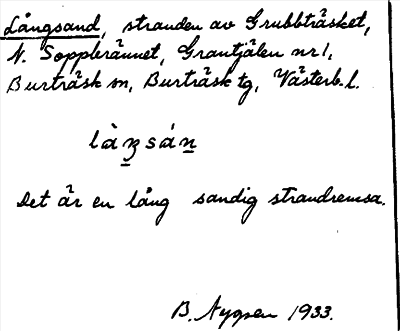 Långsand, stranden av Grubbträsket,
N. Sopplerännet, Grantjälen nr 1,
Burträsk sn, Burträsk tg, Västerb. l.
Det är en lång sandig strandremsa.
B. 1933.